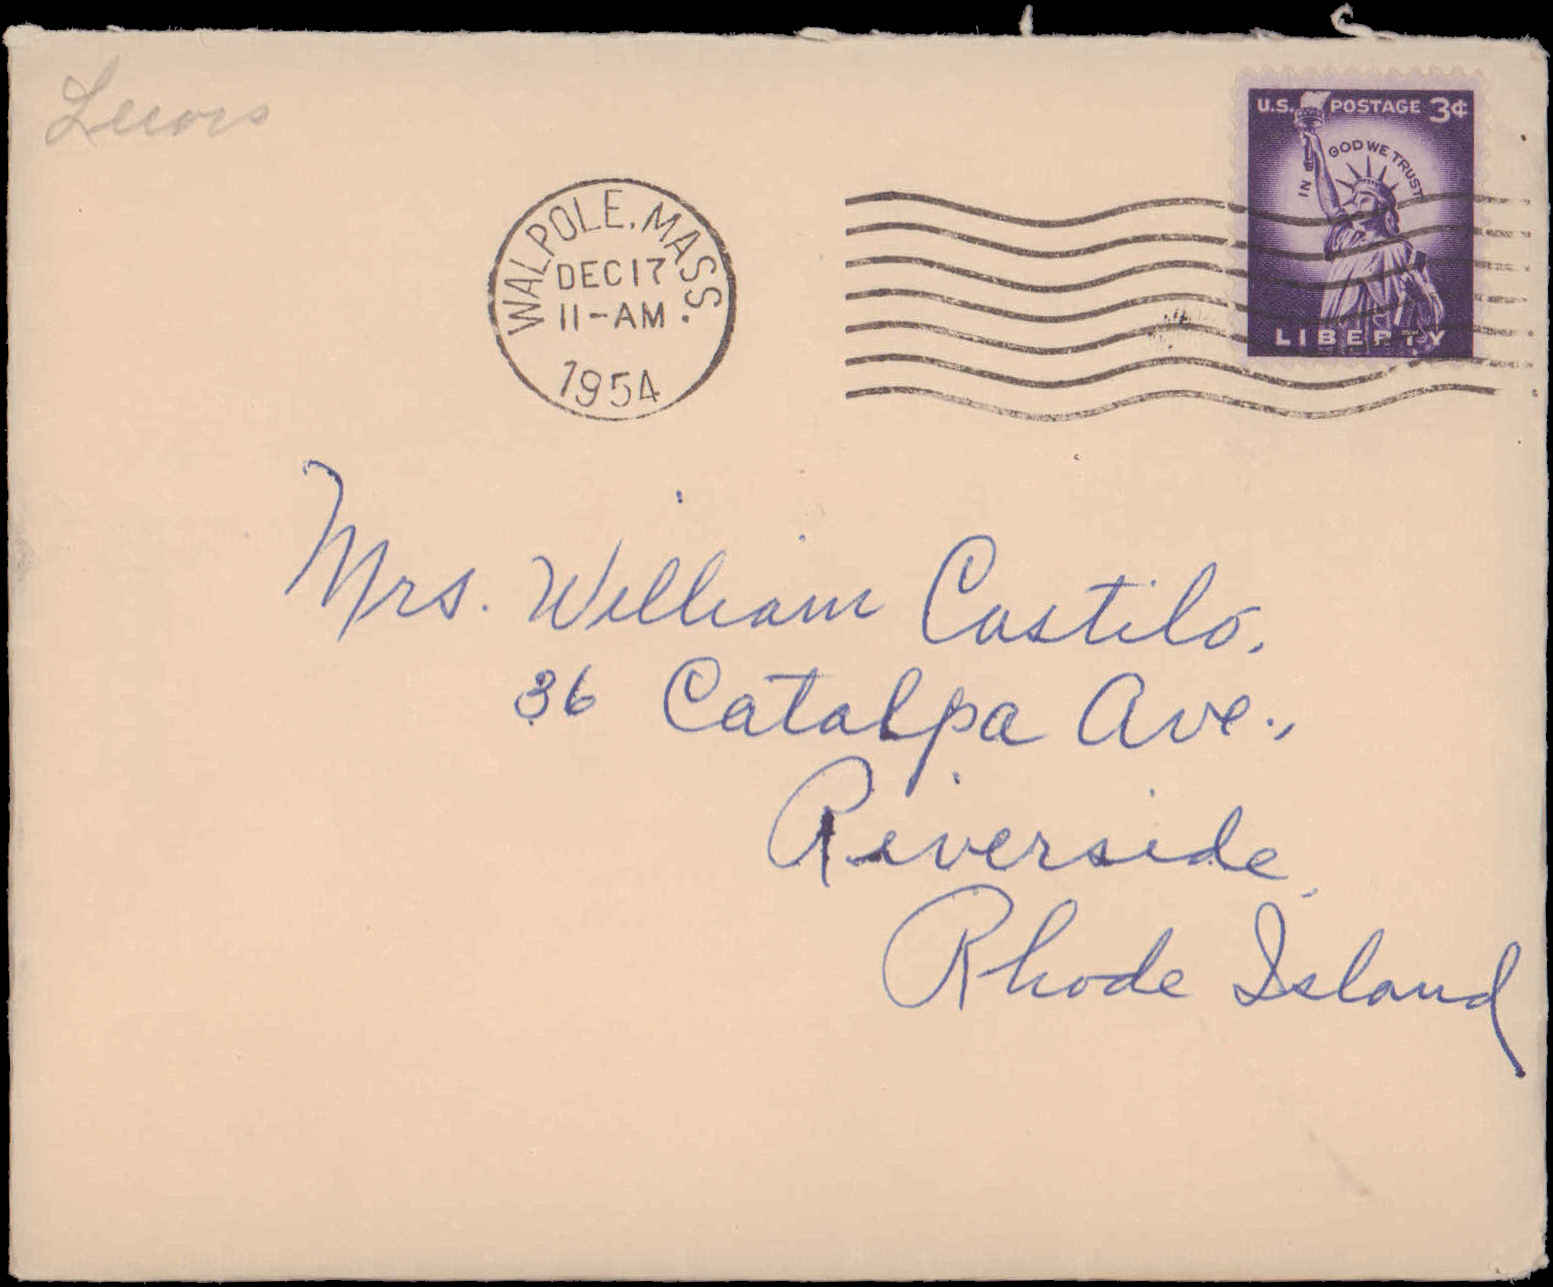 Lewis
U.S. POSTAGE 3¢
IN GOD WE TRUST
LIBERTY
WALPOLE, MASS.
DEC 17
11-AM
1954
Mrs. William Castilo,
36 Catalpa Ave.,
Riverside,
Rhode Island